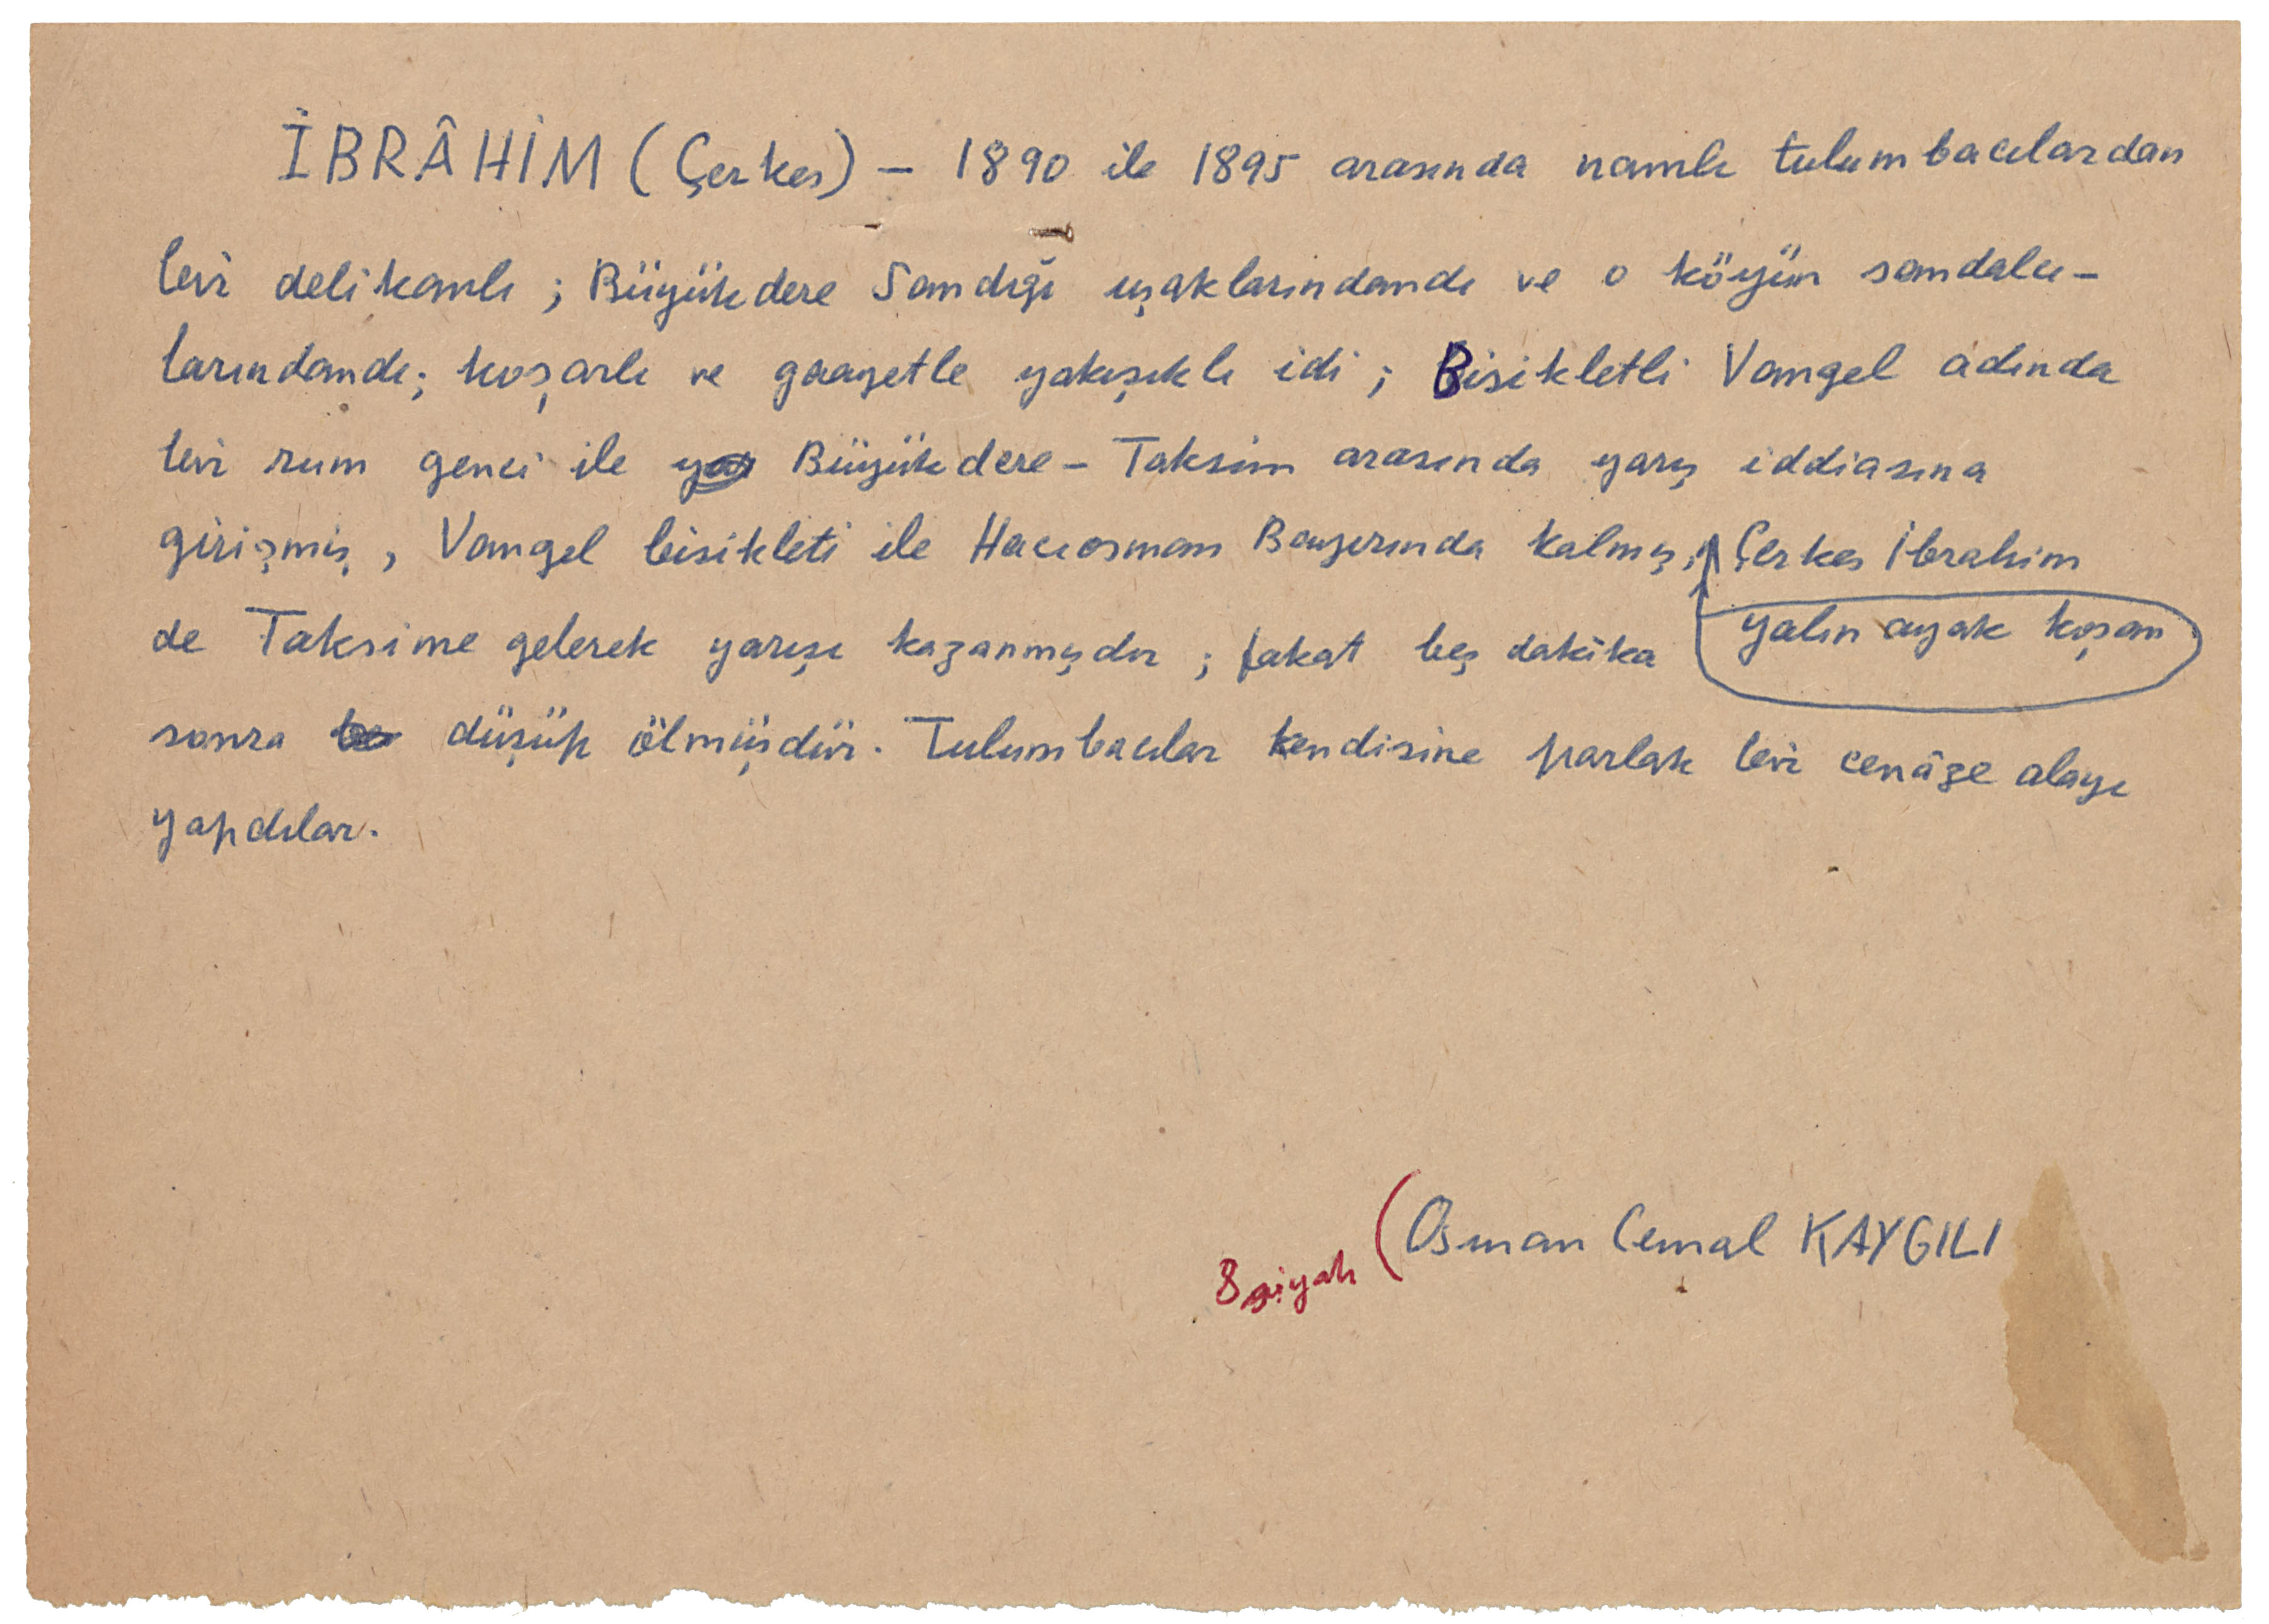 İBRÂHİM (Çerkes) – 1890 ile 1895 arasında namlı tulumbacılardan
bir delikanlı ; Büyükdere Sandığı uşaklarındandı ve o köyün sandalcı-
larındandı; koşarlı ve gaayetle yakışıklı idi ; Bisikletli Vangel adında
bir rum genci ile Büyükdere – Taksim arasında yarış iddiasına
girişmiş, Vangel bisikleti ile Hacıosman Bayırında kalmış, Çerkes İbrahim
yalın ayak koşan
de Taksime gelerek yarışı kazanmışdır ; fakat beş dakika
sonra düşüp ölmüşdür. Tulumbacılar kendisine parlak bir cenâze alayı
yapdılar.
(Osman Cemal KAYGILI
8 siyah